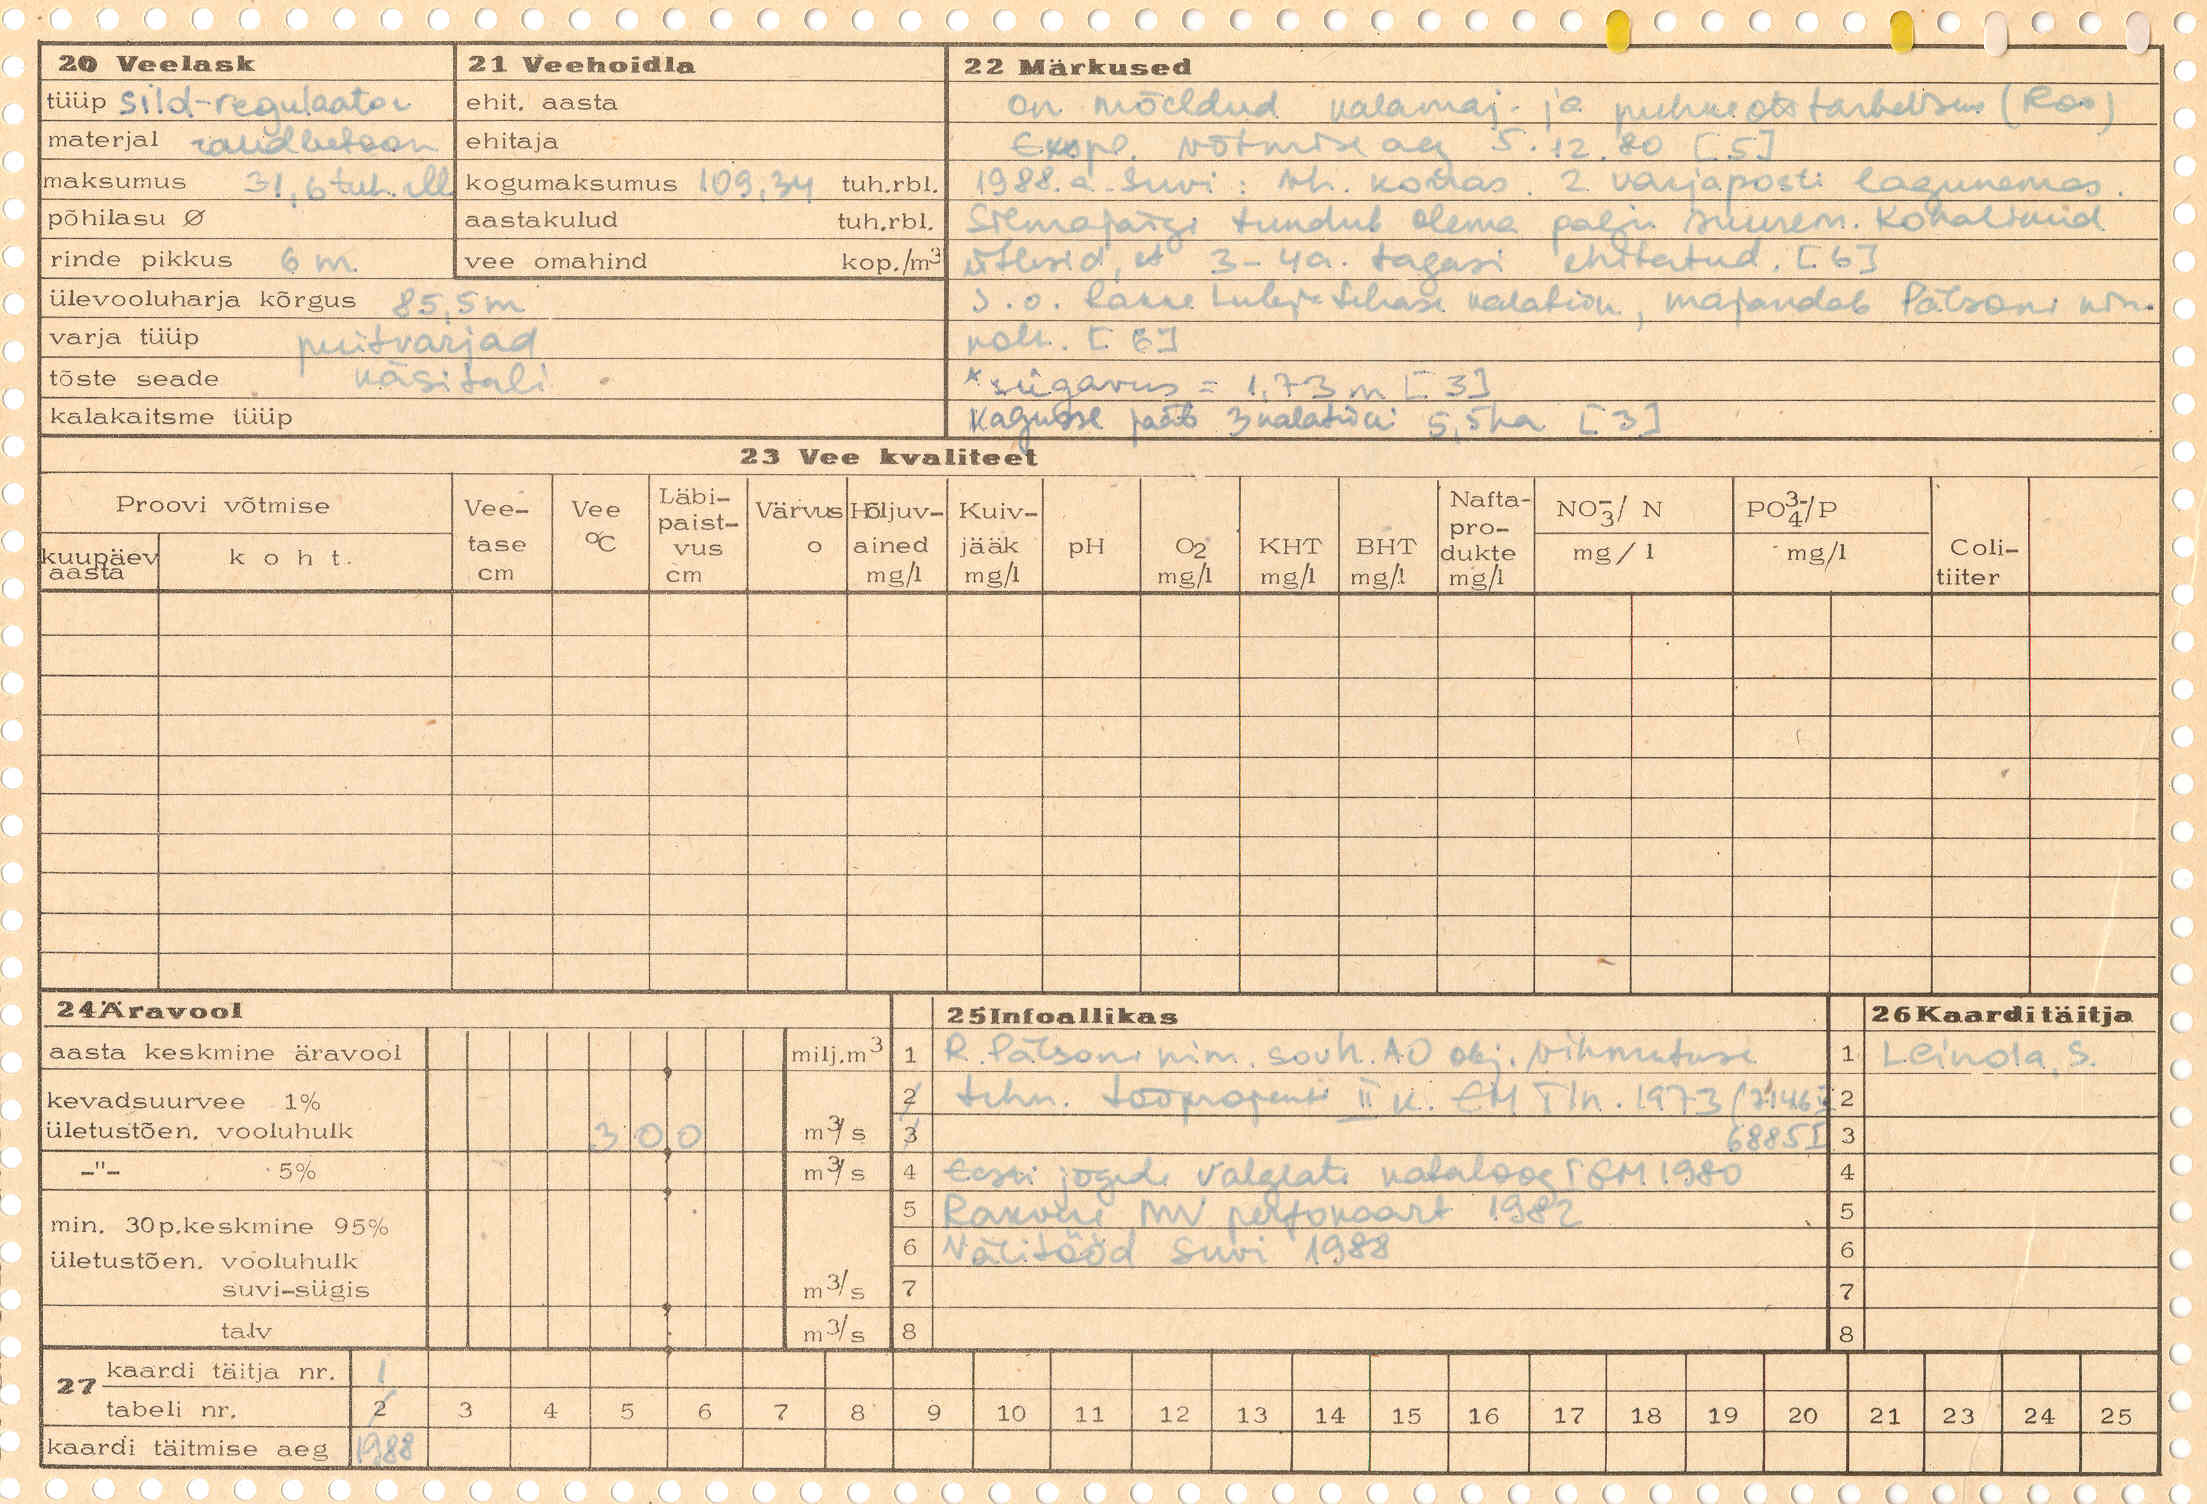 20 Veelask
tüüp sild-regulaator
materjal raudbetoon
maksumus 31,6 tuh. rbl
põhilasu Ø
rinde pikkus 6 m
ülevooluharja kõrgus 85,5 m
varja tüüp puitvarjad
tõste seade käsitali
kalakaitsme tüüp
21 Veehoidla
ehit. aasta
ehitaja
kogumaksumus 109,34 tuh.rbl.
aastakulud tuh.rbl.
vee omahind kop./m3
22 Märkused
on mõeldud kalamaj. ja puhkeotstarbeliseks (Roo)
Ekspl. võtmise aeg 5.12.80 [5]
1988.a. suvi: vh. korras. 2 varjaposti lagunemas.
Silmajärgi tundub olema palju suurem. Kohalikud
ütlesid, et 3-4a. tagasi ehitatud. [6]
S.o. Rakke Lubjatehase kalatiik, majandab Pälsoni nim.
kolh. [6]
* sügavus = 1,73 m [3]
Kagusse jääb 3 kalatiiki 5,5ha [3]
23 Vee kvaliteet
Proovi võtmise
kuupäev aasta
koht.
Vee-tase cm
Vee °C
Läbi-paist-vus cm
Värvus o
Hõljuv-ained mg/l
Kuiv-jääk mg/l
pH
O2 mg/l
KHT mg/l
BHT mg/l
Nafta-pro-dukte mg/l
NO3-/ N mg/l
PO4 3-/P mg/l
Coli-tiiter
24 Äravool
aasta keskmine äravool milj.m3
kevadsuurvee 1%
ületustõen. vooluhulk 3 0 0 m3/s
-"- 5% m3/s
min. 30p.keskmine 95%
ületustõen. vooluhulk
suvi-sügis m3/s
talv m3/s
25 Infoallikas
1 R. Pälsoni nim. sovh. AO obj. vihmutuse
2 tehn. tööprojekti II k. EM Tln. 1973 (7146
3 6885I
4 Eesti jõgede valglate kataloog I EM 1980
5 Rakvere MV perfokaart 1982
6 Välitööd suvi 1988
7
8
26 Kaarditäitja
1 Leinola, S.
2
3
4
5
6
7
8
27 kaardi täitja nr. 1
tabeli nr. 2 3 4 5 6 7 8 9 10 11 12 13 14 15 16 17 18 19 20 21 23 24 25
kaardi täitmise aeg 1988